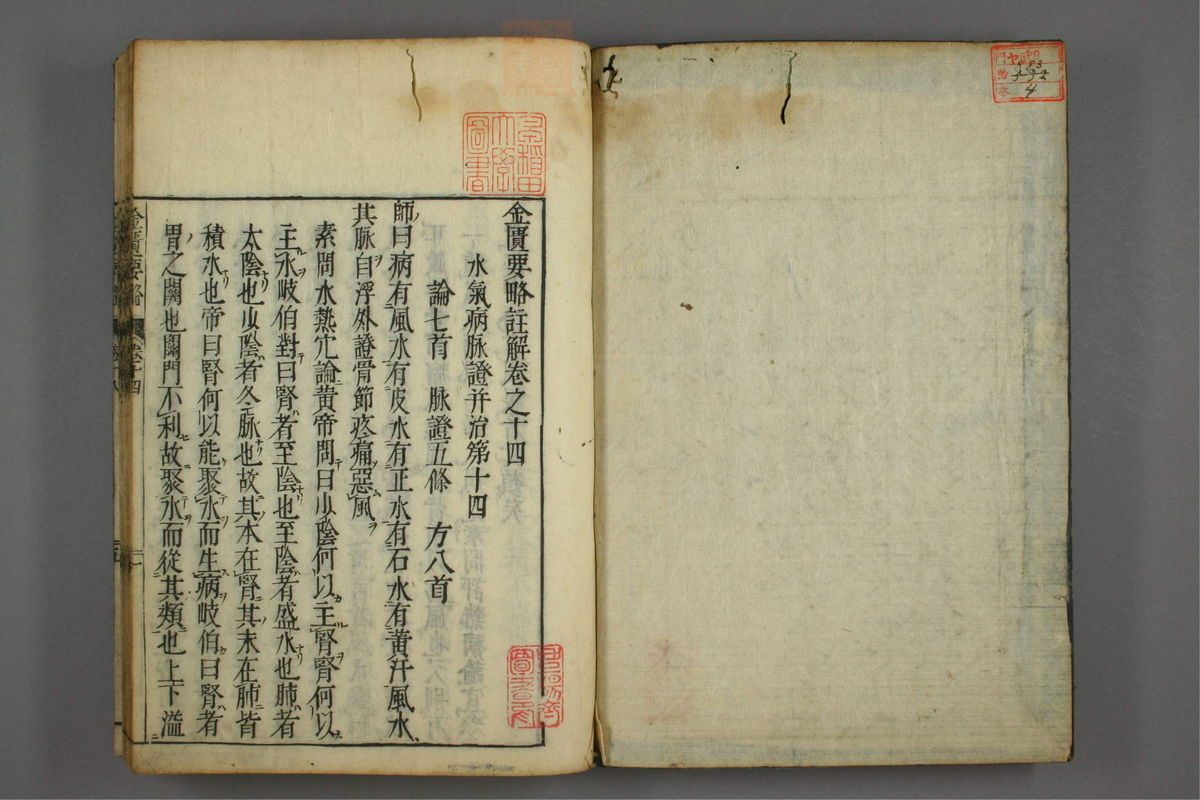 金匱要略註解卷之十四
水氣病脉證并治第十四
論七首 脉證五條 方八首
師曰病有風水有皮水有正水有石水有黃汗風水
其脉自浮外證骨節疼痛惡風
素問水熱穴論黃帝問曰少陰何以主腎腎何以
主水岐伯對曰腎者至陰也至陰者盛水也肺者
太陰也少陰者冬脉也故其本在腎其末在肺皆
積水也帝曰腎何以能聚水而生病岐伯曰腎者
胃之關也關門不利故聚水而從其類也上下溢
早稻田
大學
圖書
門
4